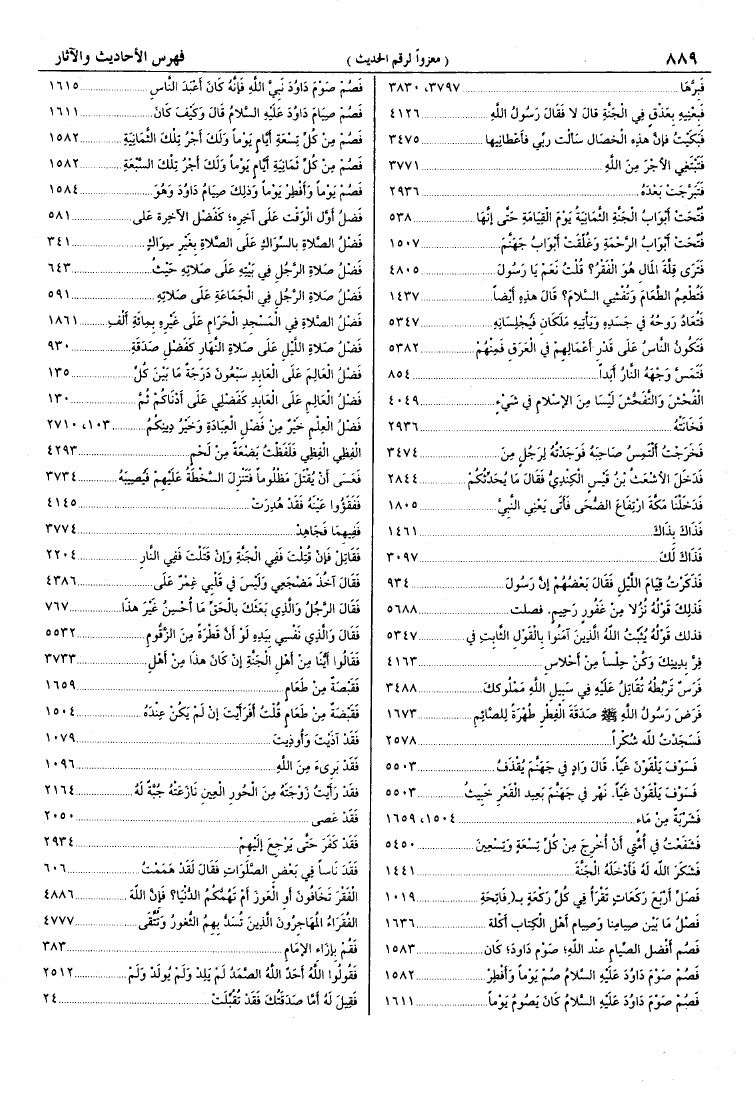 ٨٨٩ ( معزواً لرقم الحديث ) فهرس الأحاديث والآثار
فَبِرَّهَا ٣٧٩٧، ٣٨٣٠
فَبِعْنِيهِ بِعَذْقٍ فِي الْجَنَّةِ قال لا فَقَالَ رَسُولُ اللهِ ٤١٢٦
فَبَكَيْتُ فإنَّ هذه الخصال سألت ربِّي فأعْطانيها ٣٤٧٥
فَتَبْتَغِي الأَجْرَ مِنَ اللهِ ٣٧٧١
فَتَبَرَّجَتْ بَعْدَهُ ٢٩٣٦
فُتِّحَتْ أَبْوَابُ الجَنَّةِ الثَّمَانِيَةُ يَوْمَ القِيَامَةِ حَتَّى إِنَّهَا ٥٣٨
فُتِّحَتْ أَبْوَابُ الرَّحْمَةِ وَغُلِّقَتْ أَبْوَابُ جَهَنَّمَ ١٥٠٧
فَتَرَى قِلَّةَ المَالِ هُوَ الفَقْرُ؟ قُلْتُ نَعَمْ يَا رَسُولَ ٤٨٠٥
فَتُطْعِمُ الطَّعَامَ وَتُفْشِي السَّلامَ؟ قالَ هذِهِ أَيْضاً ١٤٣٧
فَتُعَادُ رَوحُهُ فِي جَسَدِهِ وَيَأْتِيهِ مَلَكَانِ فَيُجْلِسَانِهِ ٥٣٤٧
فَتَكُونُ النَّاسُ عَلَى قَدْرِ أَعْمَالِهِمْ فِي العَرَقِ فَمِنْهُمْ ٥٣٨٢
فَتَمَسَّ وَجْهَهُ النَّارُ أَبَداً ٨٥٤
الفُحْشَ وَالتَّفَحُّشَ لَيْسَا مِنَ الإِسْلامِ فِي شَيْءٍ ٤٠٤٩
فَخَانَتْهُ ٢٩٣٦
فَخَرَجْتُ أَلْتَمِسُ صَاحِبَهُ فَوَجَدْتُهُ لِرَجُلٍ مِنَ ٣٤٧٤
فَدَخَلَ الأَشْعَثُ بْنُ قَيْسٍ الكِنْدِيُّ فَقَالَ مَا يُحَدِّثُكُمْ ٢٨٤٤
فَدَخَلْنَا مَكَّةَ ارْتِفَاعَ الضُّحَى فَأَتَى يَعْنِي النَّبِيَّ ١٨٠٥
فَذَاكَ بِذَاكَ ١٤٦١
فَذَاكَ لَكَ ٣٠٩٧
فَذَكَرْتُ قِيَامَ اللَّيْلِ فَقَالَ بَعْضُهُمْ إِنَّ رَسُولَ ٩٣٤
فَذلِكَ قَوْلُهُ نُزُلاً مِنْ غَفُورٍ رَحِيمٍ. فصلت ٥٦٨٨
فذلك قَوْلُهُ يُثَبِّتُ اللهُ الَّذِينَ آمَنُوا بِالْقَوْلِ الثَّابِتِ في ٥٣٤٧
فِرَّ بِدِينِكَ وَكُنْ حِلْساً مِنْ أَحْلاسِ ٤١٦٣
فَرَسٌ تَرْبُطُهُ تُقَاتِلُ عَلَيْهِ فِي سَبِيلِ اللهِ مَمْلُوكك ٣٤٨٨
فَرَضَ رَسُولُ اللهِ ﷺ صَدَقَةَ الفِطْرِ طُهْرَةً لِلصَّائِمِ ١٦٧٣
فَسَجَدْتُ لله شُكْراً ٢٥٧٨
فَسَوْفَ يَلْقَوْنَ غَيّاً. قَالَ وَادٍ فِي جَهَنَّمَ يُقْذَفُ ٥٥٠٣
فَسَوْفَ يَلْقَوْنَ غَيّاً. نَهْر فِي جَهَنَّمَ بَعِيد القَعْرِ خَبِيثُ ٥٥٠٣
فَشَرْبَةٌ مِنْ مَاءٍ ١٥٠٤، ١٦٥٩
فَشَفَعْتُ فِي أُمَّتِي أَنْ أُخْرِجَ مِنْ كُلِّ تِسْعَةٍ وَتِسْعِينَ ٥٤٥٠
فَشَكَرَ اللهُ لَهُ فَأَدْخَلَهُ الجَنَّةَ ١٤٤١
فَصَلِّ أَرْبَعَ رَكَعَاتٍ تَقْرَأُ فِي كُلِّ رَكْعَةٍ بِـ(فَاتِحَةِ ١٠١٩
فَصْلُ مَا بَيْنَ صيامِنا وَصِيامِ أَهْلِ الكِتَابِ أَكْلَة ١٦٣٦
فَصُم أَفضلَ الصِّيامِ عندَ اللهِ؛ صَوْمَ دَاودَ؛ كان ١٥٨٣
فَصُمْ صَوْمَ دَاوُدَ عَلَيْهِ السَّلامُ صُمْ يَوْماً وَأَفْطِرْ ١٥٨٢
فَصُمْ صَوْمَ دَاوُدَ عَلَيْهِ السَّلامُ كَانَ يَصُومُ يَوْماً ١٦١١
فَصُمْ صَوْمَ دَاوُدَ نَبِيِّ اللهِ فَإِنَّهُ كَانَ أَعْبَدَ النَّاسِ ١٦١٥
فَصُمْ صِيَامَ دَاوُدَ عَلَيْهِ السَّلامُ قَالَ وَكَيْفَ كَانَ ١٦١١
فَصُمْ مِنْ كُلِّ تِسْعَةِ أَيَّامٍ يَوْماً وَلَكَ أَجْرُ تِلْكَ الثَّمَانِيَةِ ١٥٨٢
فَصُمْ مِنْ كُلِّ ثَمَانِيَةِ أَيَّامٍ يَوْماً وَلَكَ أَجْرُ تِلْكَ السَّبْعَةِ ١٥٨٢
فَصُمْ يَوْماً وَأَفْطِرْ يَوْماً وَذلِكَ صِيَامُ دَاوُدَ وَهُوَ ١٥٨٤
فضلُ أَوَّلِ الْوَقْتِ عَلَى آخِرِهِ؛ كَفَضْلِ الآخِرَةِ عَلَى ٥٨١
فَضْلُ الصَّلاةِ بِالسِّوَاكِ عَلَى الصَّلاةِ بِغَيْرِ سِوَاكٍ ٣٤١
فَضْلُ صَلاةِ الرَّجُلِ فِي بَيْتِهِ عَلَى صَلاتِهِ حَيْثُ ٦٤٣
فَضْلُ صَلاةِ الرَّجُلِ فِي الْجَمَاعَةِ عَلَى صَلاتِهِ ٥٩١
فَضْلُ الصَّلاةِ فِي الْمَسْجِدِ الْحَرَامِ عَلَى غَيْرِهِ بِمِائَةِ أَلْفِ ١٨٦١
فَضْلُ صَلاةِ اللَّيْلِ عَلَى صَلاةِ النَّهَارِ كَفَضْلِ صَدَقَةِ ٩٣٠
فَضْلُ العَالِمِ عَلَى العَابِدِ سَبْعُونَ دَرَجَةً مَا بَيْنَ كُلِّ ١٣٥
فَضْلُ العَالِمِ عَلَى العَابِدِ كَفَضْلِي عَلَى أَدْنَاكُمْ ثُمَّ ١٣٠
فَضْلُ العِلْمِ خَيْرٌ مِنْ فَضْلِ العِبَادَةِ وَخَيْرُ دِينِكُمُ ١٠٣، ٢٧١٠
الْفِظِي الْفِظِي فَلَفَظَتْ بَضْعَةً مِنْ لَحْمٍ ٤٢٩٣
فَعَسَى أَنْ يُقْتَلَ مَظْلُوماً فَتَنْزِلَ السَّخْطَةُ عَلَيْهِمْ فَتُصِيبَهُ ٣٧٣٤
فَفَقَؤُوا عَيْنَهُ فَقَدْ هُدِرَتْ ٤١٤٥
فَفِيهِمَا فَجَاهِدْ ٣٧٧٤
فَقَاتِلْ فَإِنْ قُتِلْتَ فَفِي الْجَنَّةِ وَإِنْ قَتَلْتَ فَفِي النَّارِ ٢٢٠٤
فَقَالَ آخُذُ مَضْجَعِي وَلَيْسَ فِي قَلْبِي غِمْرٌ عَلَى ٤٣٨٦
فَقَالَ الرَّجُلُ وَالَّذِي بَعَثَكَ بِالْحَقِّ مَا أُحْسِنُ غَيْرَ هذَا ٧٦٧
فَقَالَ وَالَّذِي نَفْسِي بِيَدِهِ لَوْ أَنَّ قَطْرَةً مِنَ الزَّقُّومِ ٥٥٣٢
فَقَالُوا أَيُّنَا مِنْ أَهْلِ الْجَنَّةِ إِنْ كَانَ هذَا مِنْ أَهْلِ ٣٧٣٣
فَقَبْصَةٌ مِنْ طَعَامٍ ١٦٥٩
فَقَبْضَةٌ مِنْ طَعَامٍ قُلْتُ أَفَرَأَيْتَ إِنْ لَمْ يَكُنْ عِنْدَهُ ١٥٠٤
فَقَدْ آذَيْتَ وَأُوذِيتَ ١٠٧٩
فَقَدْ بَرِىءَ مِنَ اللهِ ١٠٩٦
فقَدْ رَأَيْتُ زَوْجَتَهُ مِنَ الْحُورِ الْعِينِ نَازَعَتْهُ جُبَّةً لَهُ ٢١٦٤
فَقَدْ عَصى ٢٠٥٠
فَقَدْ كَفَرَ حَتَّى يَرْجِعَ إِلَيْهِمْ ٢٩٣٤
فَقَدَ نَاساً فِي بَعْضِ الصَّلَوَاتِ فَقَالَ لَقَدْ هَمَمْتُ ٦٠٦
الفَقْرَ تَخَافُونَ أوِ العَوَزَ أمْ تَهُمُّكُمُ الدُّنْيَا؟ فَإِنَّ اللهَ ٤٨٨٦
الفُقَرَاءُ المُهَاجِرُونَ الَّذِينَ تُسَدُّ بِهِمُ الثُّغُورُ وَتُتَّقَى ٤٧٧٧
فَقُمْ بِإِزَاءِ الإِمَامِ ٣٨٣
فَقُولُوا اللهُ أَحَدٌ اللهُ الصَّمَدُ لَمْ يَلِدْ وَلَمْ يُولَدْ وَلَمْ ٢٥١٢
فَقِيلَ لَهُ أَمَّا صَدَقَتُكَ فَقَدْ تُقُبِّلَتْ ٢٤